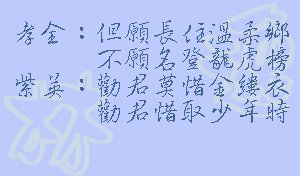 孝金：但願長住溫柔鄉
不願名登龍虎榜
紫英：勸君莫惜金縷衣
勸君惜取少年時